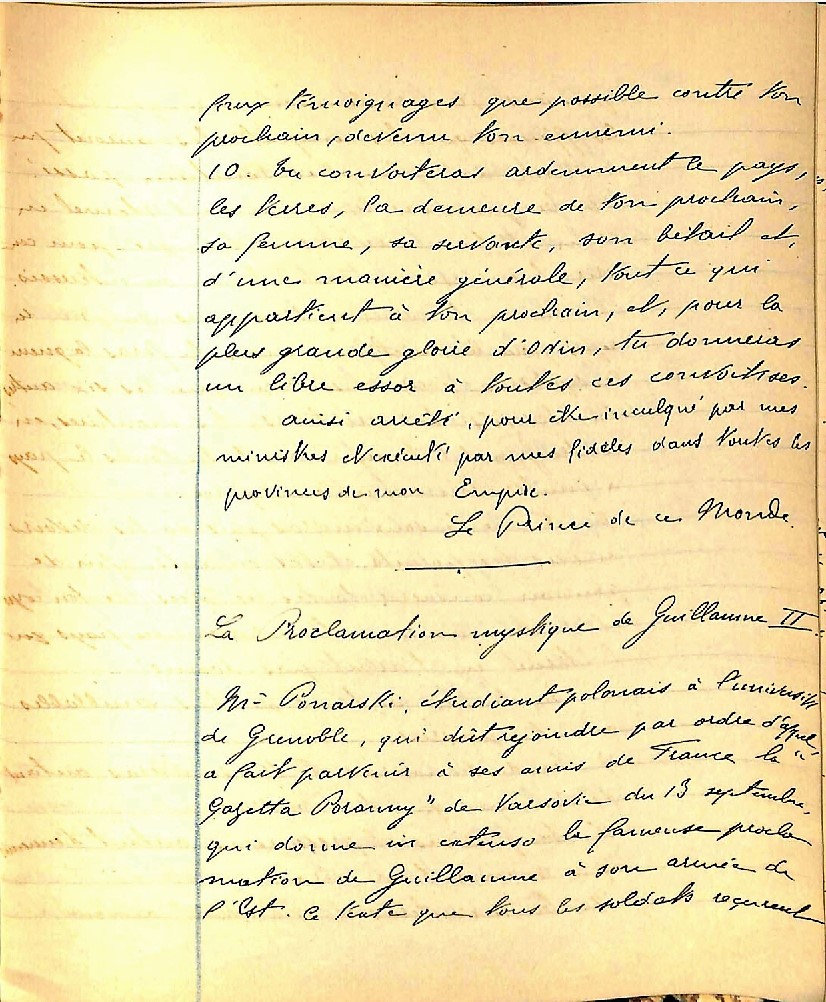 faux témoignages que possible contre ton
prochain, devenu ton ennemi.
10. Tu convoiteras ardemment le pays,
les terres, la demeure de ton prochain,
sa femme, sa servante, son bétail et,
d'une manière générale, tout ce qui
appartient à ton prochain, et, pour la
plus grande gloire d'Odin, tu donneras
un libre essor à toutes ces convoitises.
ainsi arrêté, pour être inculqué par mes
ministres et exécuté par mes fidèles dans toutes les
provinces de mon Empire.
Le Prince de ce Monde.
La Proclamation mystique de Guillaume II
Mr Ponarski, étudiant polonais à l'université
de Grenoble, qui dût rejoindre par ordre d'appel,
a fait parvenir à ses amis de France la "
Gazetta Poranny" de Varsovie du 13 septembre,
qui donne in extenso la fameuse procla
mation de Guillaume à son armée de
l'Est. Ce texte que tous les soldats reçurent